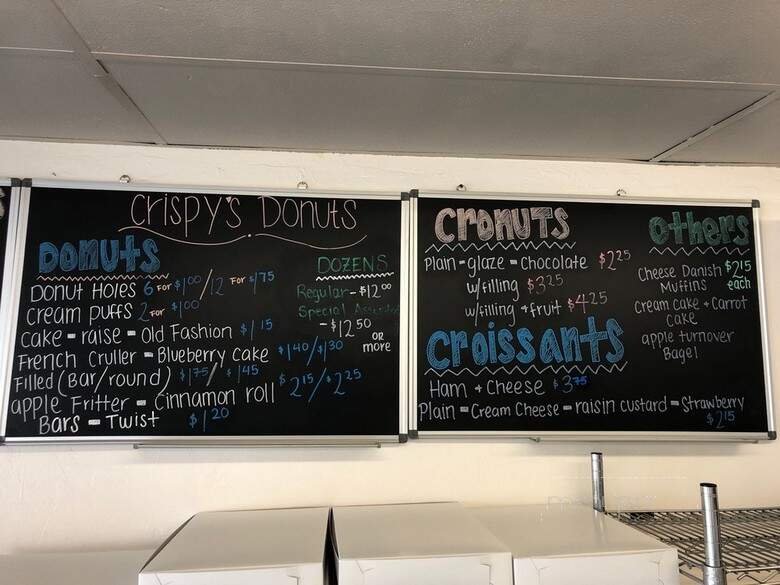 Crispy's Donuts
DONUTS
DONUT HOLES 6 FOR $1.00 / 12 FOR $1.75
cream puffs 2 FOR $1.00
cake - raise - Old Fashion $1.15
French Cruller - Blueberry Cake $1.40/$1.30
Filled (Bar/round) $1.75/$1.45
apple Fritter - Cinnamon roll $2.15/$2.25
Bars - Twist $1.20
DOZENS
Regular - $12.00
Special
- $12.50
OR
more
CRONUTS
Plain - glaze - Chocolate $2.25
w/filling $3.25
w/filling + fruit $4.25
Croissants
Ham + Cheese $3.75
Plain - Cream Cheese - raisin custard - Strawberry
$2.15
Others
Cheese Danish $2.15
Muffins each
Cream cake + Carrot
cake
apple turnover
Bagel